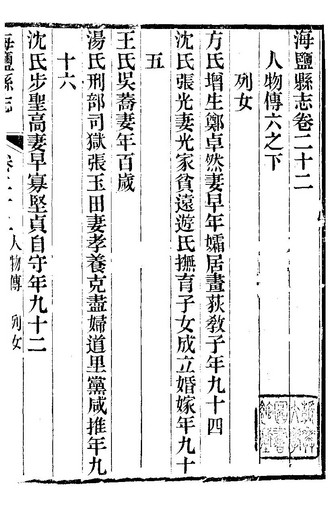 海鹽縣志卷二十二
人物傳六之下
列女
方氏增生鄭卓然妻早年孀居畫荻教子年九十四
沈氏張光妻光家貧遠遊氏撫育子女成立婚嫁年九十
五
王氏吳喬妻年百歲
湯氏刑部司獄張玉田妻孝養克盡婦道里黨咸推年九
十六
沈氏步聖高妻早寡堅貞自守年九十二
海鹽縣志
卷二十二
人物傳
列女